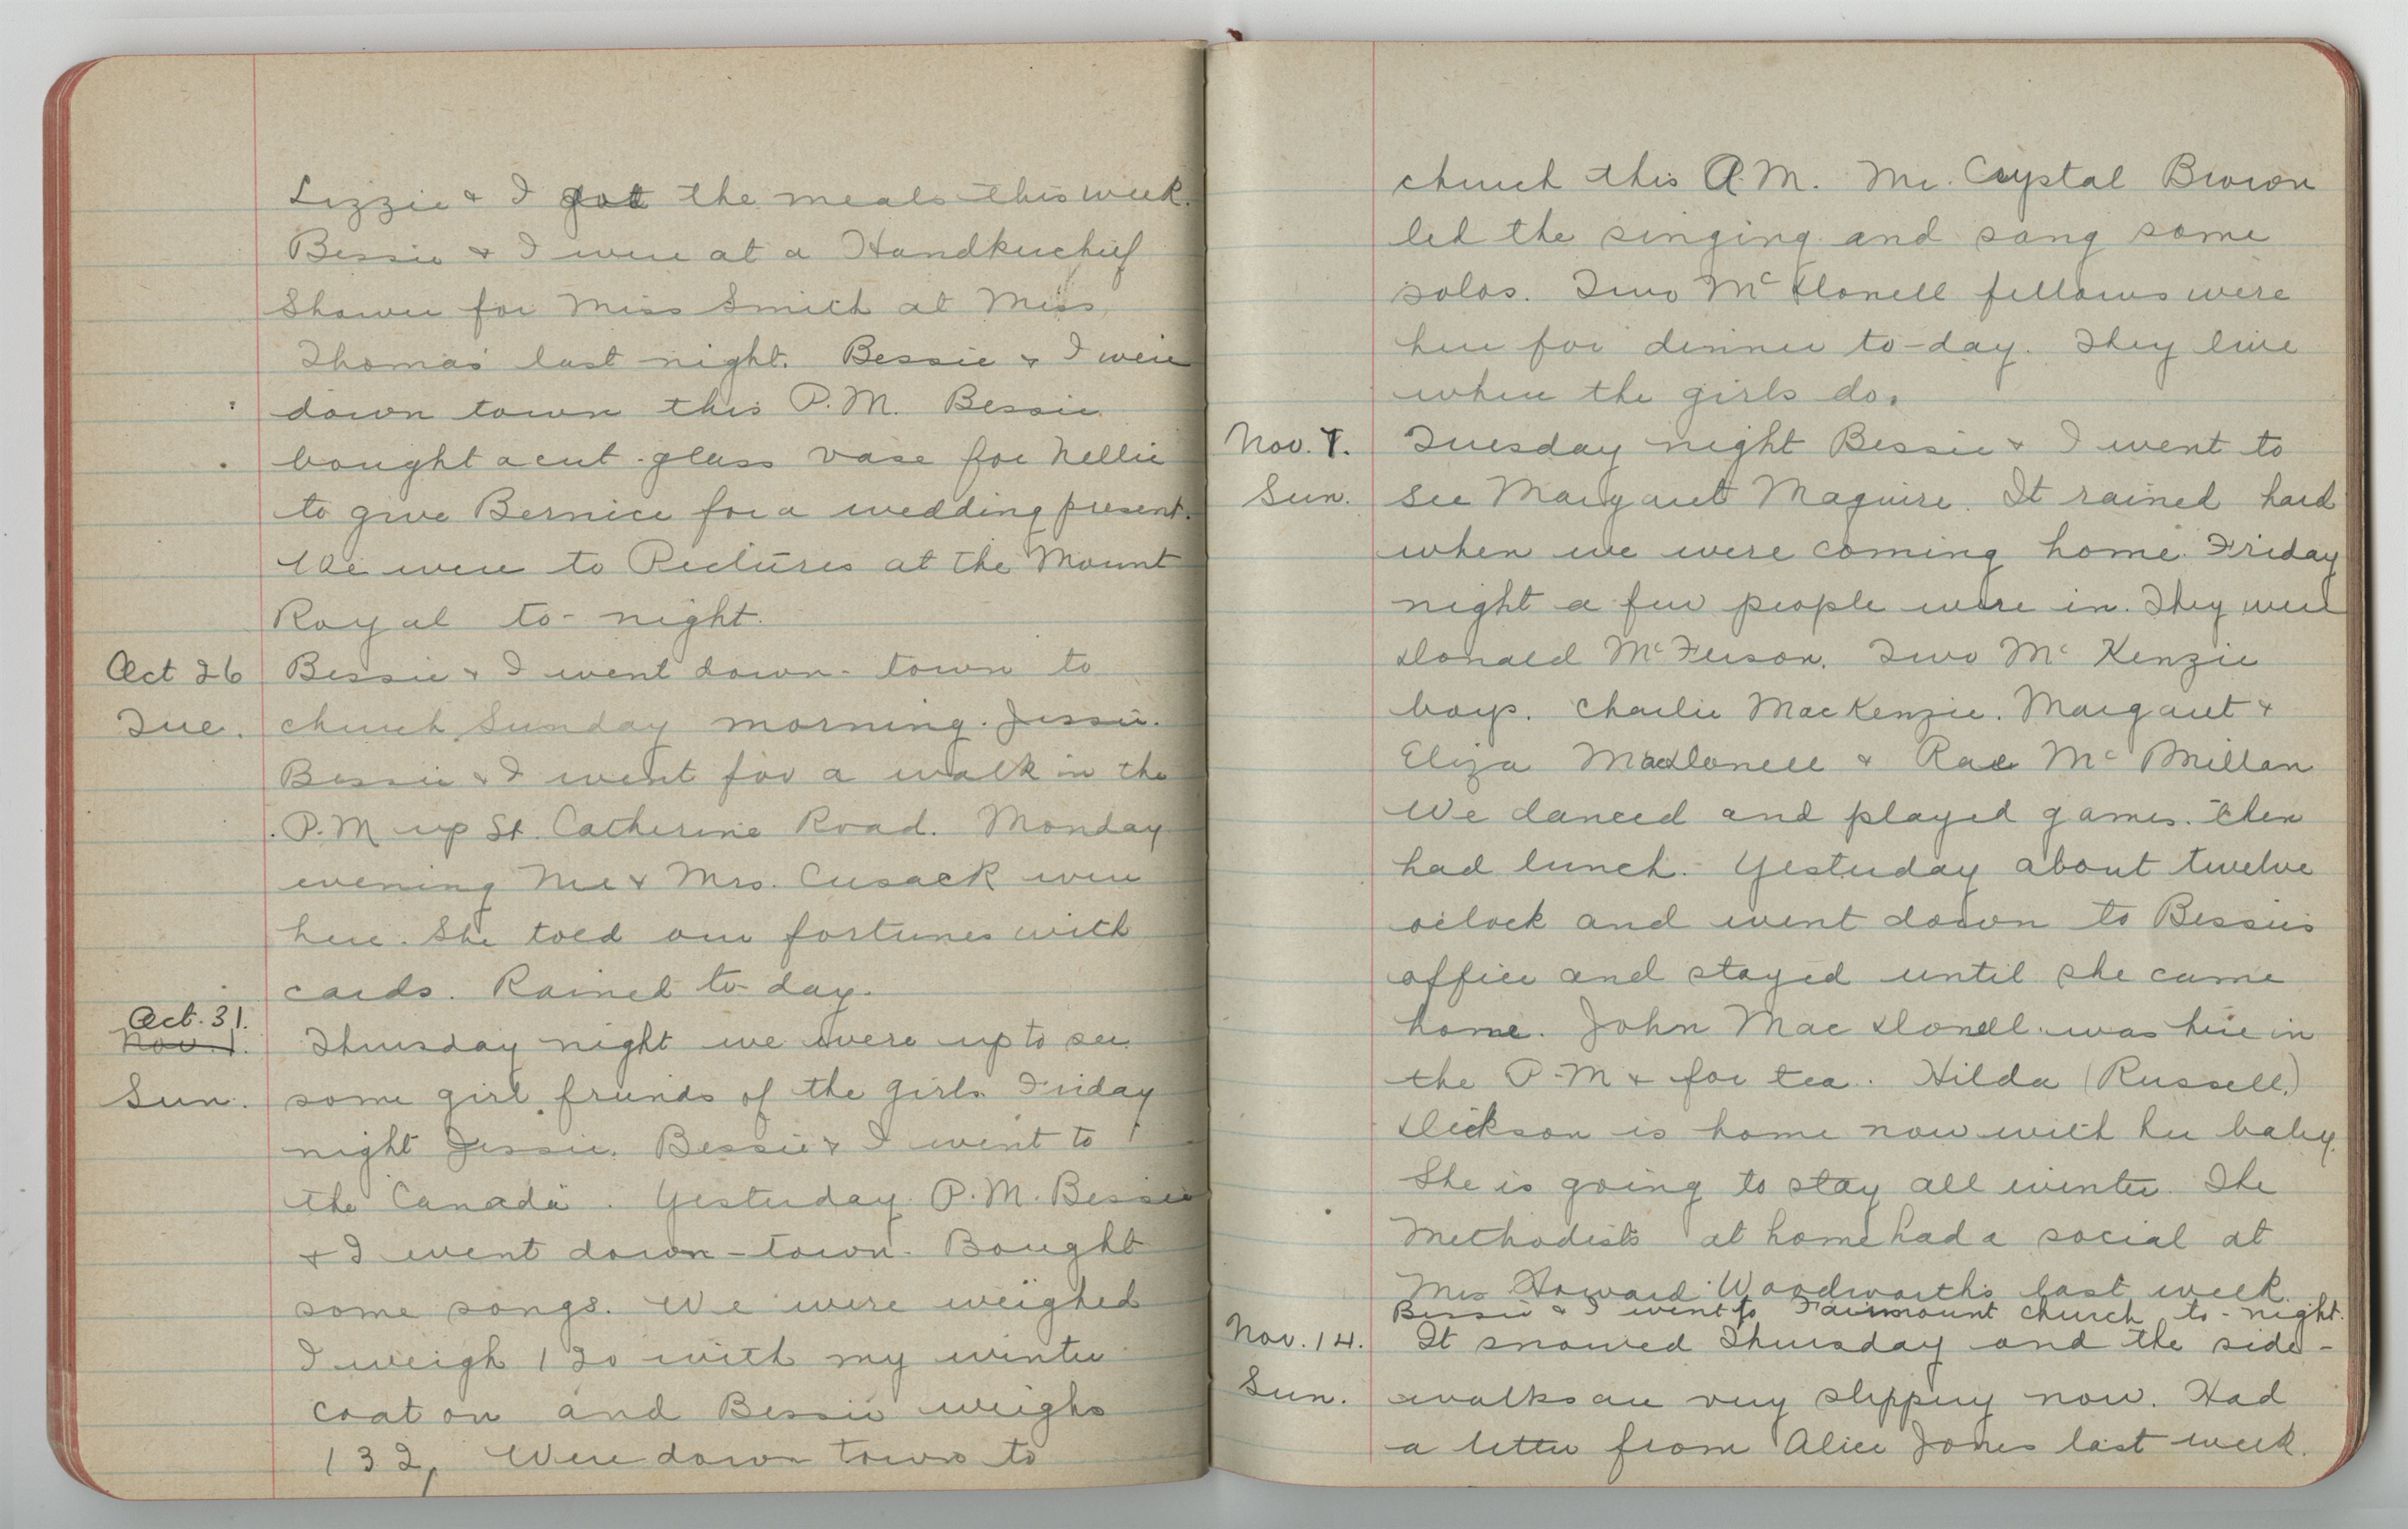 Lizzie & I got the meals this week.
Bessie & I were at a Handkerchief
Shower for Miss Smith at Miss
Thomas' last night. Bessie & I were
down town this P.M. Bessie
bought a cut-glass vase for Nellie
to give Bernice for a wedding present.
We were to Pictures at the Mount
Royal to-night.
Oct 26 Bessie & I went down-town to
Tue. church Sunday morning. Jessie.
Bessie & I went for a walk in the
P.M up St. Catherine Road. Monday
evening Mr & Mrs. Cusack were
here. She told our fortunes with
cards. Rained to-day.
Oct. 31.
Nov. 1. Thursday night we were up to see
Sun. some girl friends of the girls. Friday
night Jessie. Bessie & I went to
the "Canada". Yesterday P.M. Bessie
& I went down-town. Bought
some songs. We were weighed
I weigh 120 with my winter
coat on and Bessie weighs
132, Were down town to
church this A.M. Mr. Crystal Brown
led the singing and sang some
solos. Two McDonell fellows were
here for dinner to-day. They live
where the girls do.
Nov. 7. Tuesday night Bessie & I went to
Sun. see Margaret Maguire. It rained hard
when we were coming home. Friday
night a few people were in. They were
Donald McFerson. Two McKenzie
boys. Charlie MacKenzie. Margaret &
Eliza MacDonell & Rae McMillan
We danced and played games. then
had lunch. Yesterday about twelve
o'clock and went down to Bessie's
office and stayed until she came
home. John MacDonell was here in
the P.M & for tea. Hilda (Russell)
Dickson is home now with her baby.
She is going to stay all winter. The
Methodists at home had a social at
Mrs Howard Woodworth's last week.
Bessie & I went to Fairmount church to-night.
Nov. 14. It snowed Thursday and the side-
Sun. walks are very slippery now. Had
a letter from Alice Jones last week.